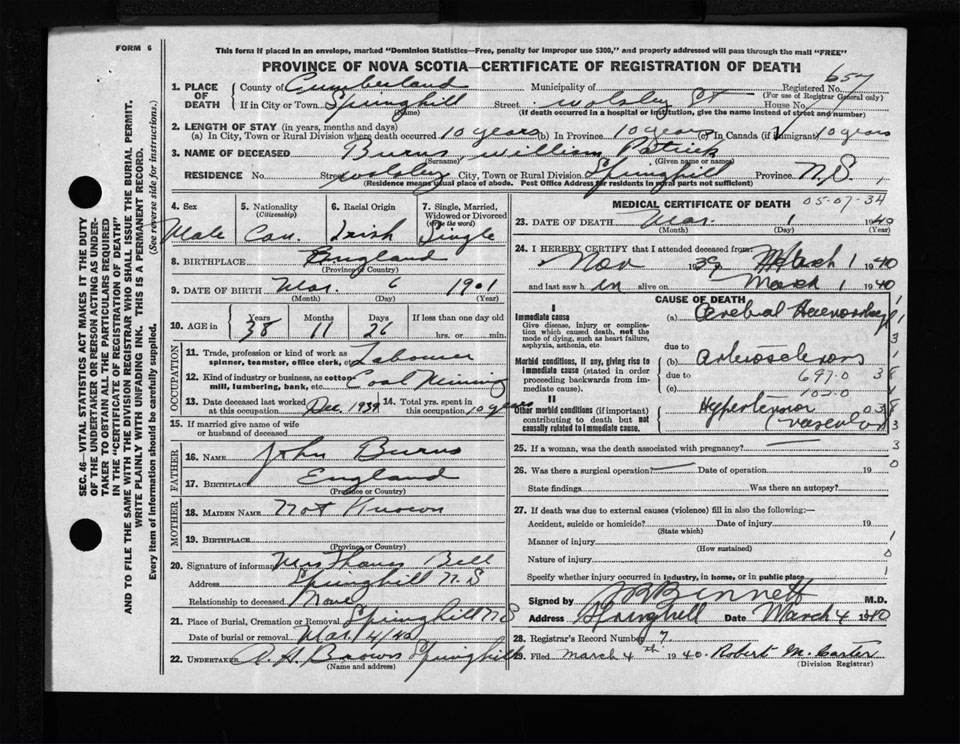 FORM 6
This form if placed in an envelope, marked "Dominion Statistics—Free, penalty for improper use $300," and properly addressed will pass through the mail "FREE"
PROVINCE OF NOVA SCOTIA—CERTIFICATE OF REGISTRATION OF DEATH
SEC. 46—VITAL STATISTICS ACT MAKES IT THE DUTY
OF THE UNDERTAKER OR PERSON ACTING AS UNDER-
TAKER TO OBTAIN ALL THE PARTICULARS REQUIRED
IN THE "CERTIFICATE OF REGISTRATION OF DEATH"
AND TO FILE THE SAME WITH THE DIVISION REGISTRAR WHO SHALL ISSUE THE BURIAL PERMIT.
WRITE PLAINLY WITH UNFADING INK. THIS IS A PERMANENT RECORD.
Every item of information should be carefully supplied. (See reverse side for instructions.)
1. PLACE OF DEATH
County of Cumberland Municipality of Registered No. 657
(For use of Registrar General only)
If in City or Town Springhill Street Wolsley St House No.
(Name) (If death occurred in a hospital or institution, give the name instead of street and number)
2. LENGTH OF STAY (in years, months and days)
(a) In City, Town or Rural Division where death occurred 10 years (b) In Province 10 years In Canada (if immigrant) 10 years
3. NAME OF DECEASED Burns William Patrick
(Surname) (Given name or names)
RESIDENCE No. Street Wolsley City, Town or Rural Division Springhill Province N.S.
(Residence means usual place of abode. Post Office Address for residents in rural parts not sufficient)
4. Sex Male
5. Nationality (Citizenship) Can.
6. Racial Origin Irish
7. Single, Married, Widowed or Divorced (write the word) Single
8. BIRTHPLACE England
(Province or Country)
9. DATE OF BIRTH Mar. 6 1901
(Month) (Day) (Year)
10. AGE in Years 38 Months 11 Days 26 If less than one day old
hrs. or min.
OCCUPATION
11. Trade, profession or kind of work as spinner, teamster, office clerk, etc. Labourer
12. Kind of industry or business, as cotton mill, lumbering, bank, etc. Coal Mining
13. Date deceased last worked at this occupation Dec. 1939 14. Total yrs. spent in this occupation 10 years
15. If married give name of wife or husband of deceased
FATHER
16. NAME John Burns
17. BIRTHPLACE England
(Province or Country)
MOTHER
18. MAIDEN NAME Not Known
19. BIRTHPLACE
(Province or Country)
20. Signature of informant Mrs Bell
Address Springhill N.S
Relationship to deceased None
21. Place of Burial, Cremation or Removal Springhill N S
Date of burial or removal Mar. 4/40
22. UNDERTAKER A. H. Brown Springhill
(Name and address)
MEDICAL CERTIFICATE OF DEATH 05-07-34
23. DATE OF DEATH Mar. 1 1940
(Month) (Day) (Year)
24. I HEREBY CERTIFY that I attended deceased from:
Nov 1939 March 1 1940
and last saw him alive on March 1 1940
CAUSE OF DEATH
I
Immediate cause
Give disease, injury or complication which caused death, not the mode of dying, such as heart failure, asphyxia, asthenia, etc.
(a) Cerebral Haemorrhage
due to
Morbid conditions, if any, giving rise to immediate cause (stated in order proceeding backwards from immediate cause).
(b) Arteriosclerosis
due to 697.0
(c) 102.0
II
Other morbid conditions (if important) contributing to death but not causally related to immediate cause.
Hypertension
(vascular)
25. If a woman, was the death associated with pregnancy?
26. Was there a surgical operation? Date of operation 19
State findings Was there an autopsy?
27. If death was due to external causes (violence) fill in also the following:—
Accident, suicide or homicide? Date of injury 19
(State which)
Manner of injury
(How sustained)
Nature of injury
Specify whether injury occurred in industry, in home, or in public place
Signed by Bennett M.D.
Address Springhill Date March 4 1940
28. Registrar's Record Number 7.
29. Filed March 4th 1940. Robert M. Carter
(Division Registrar)